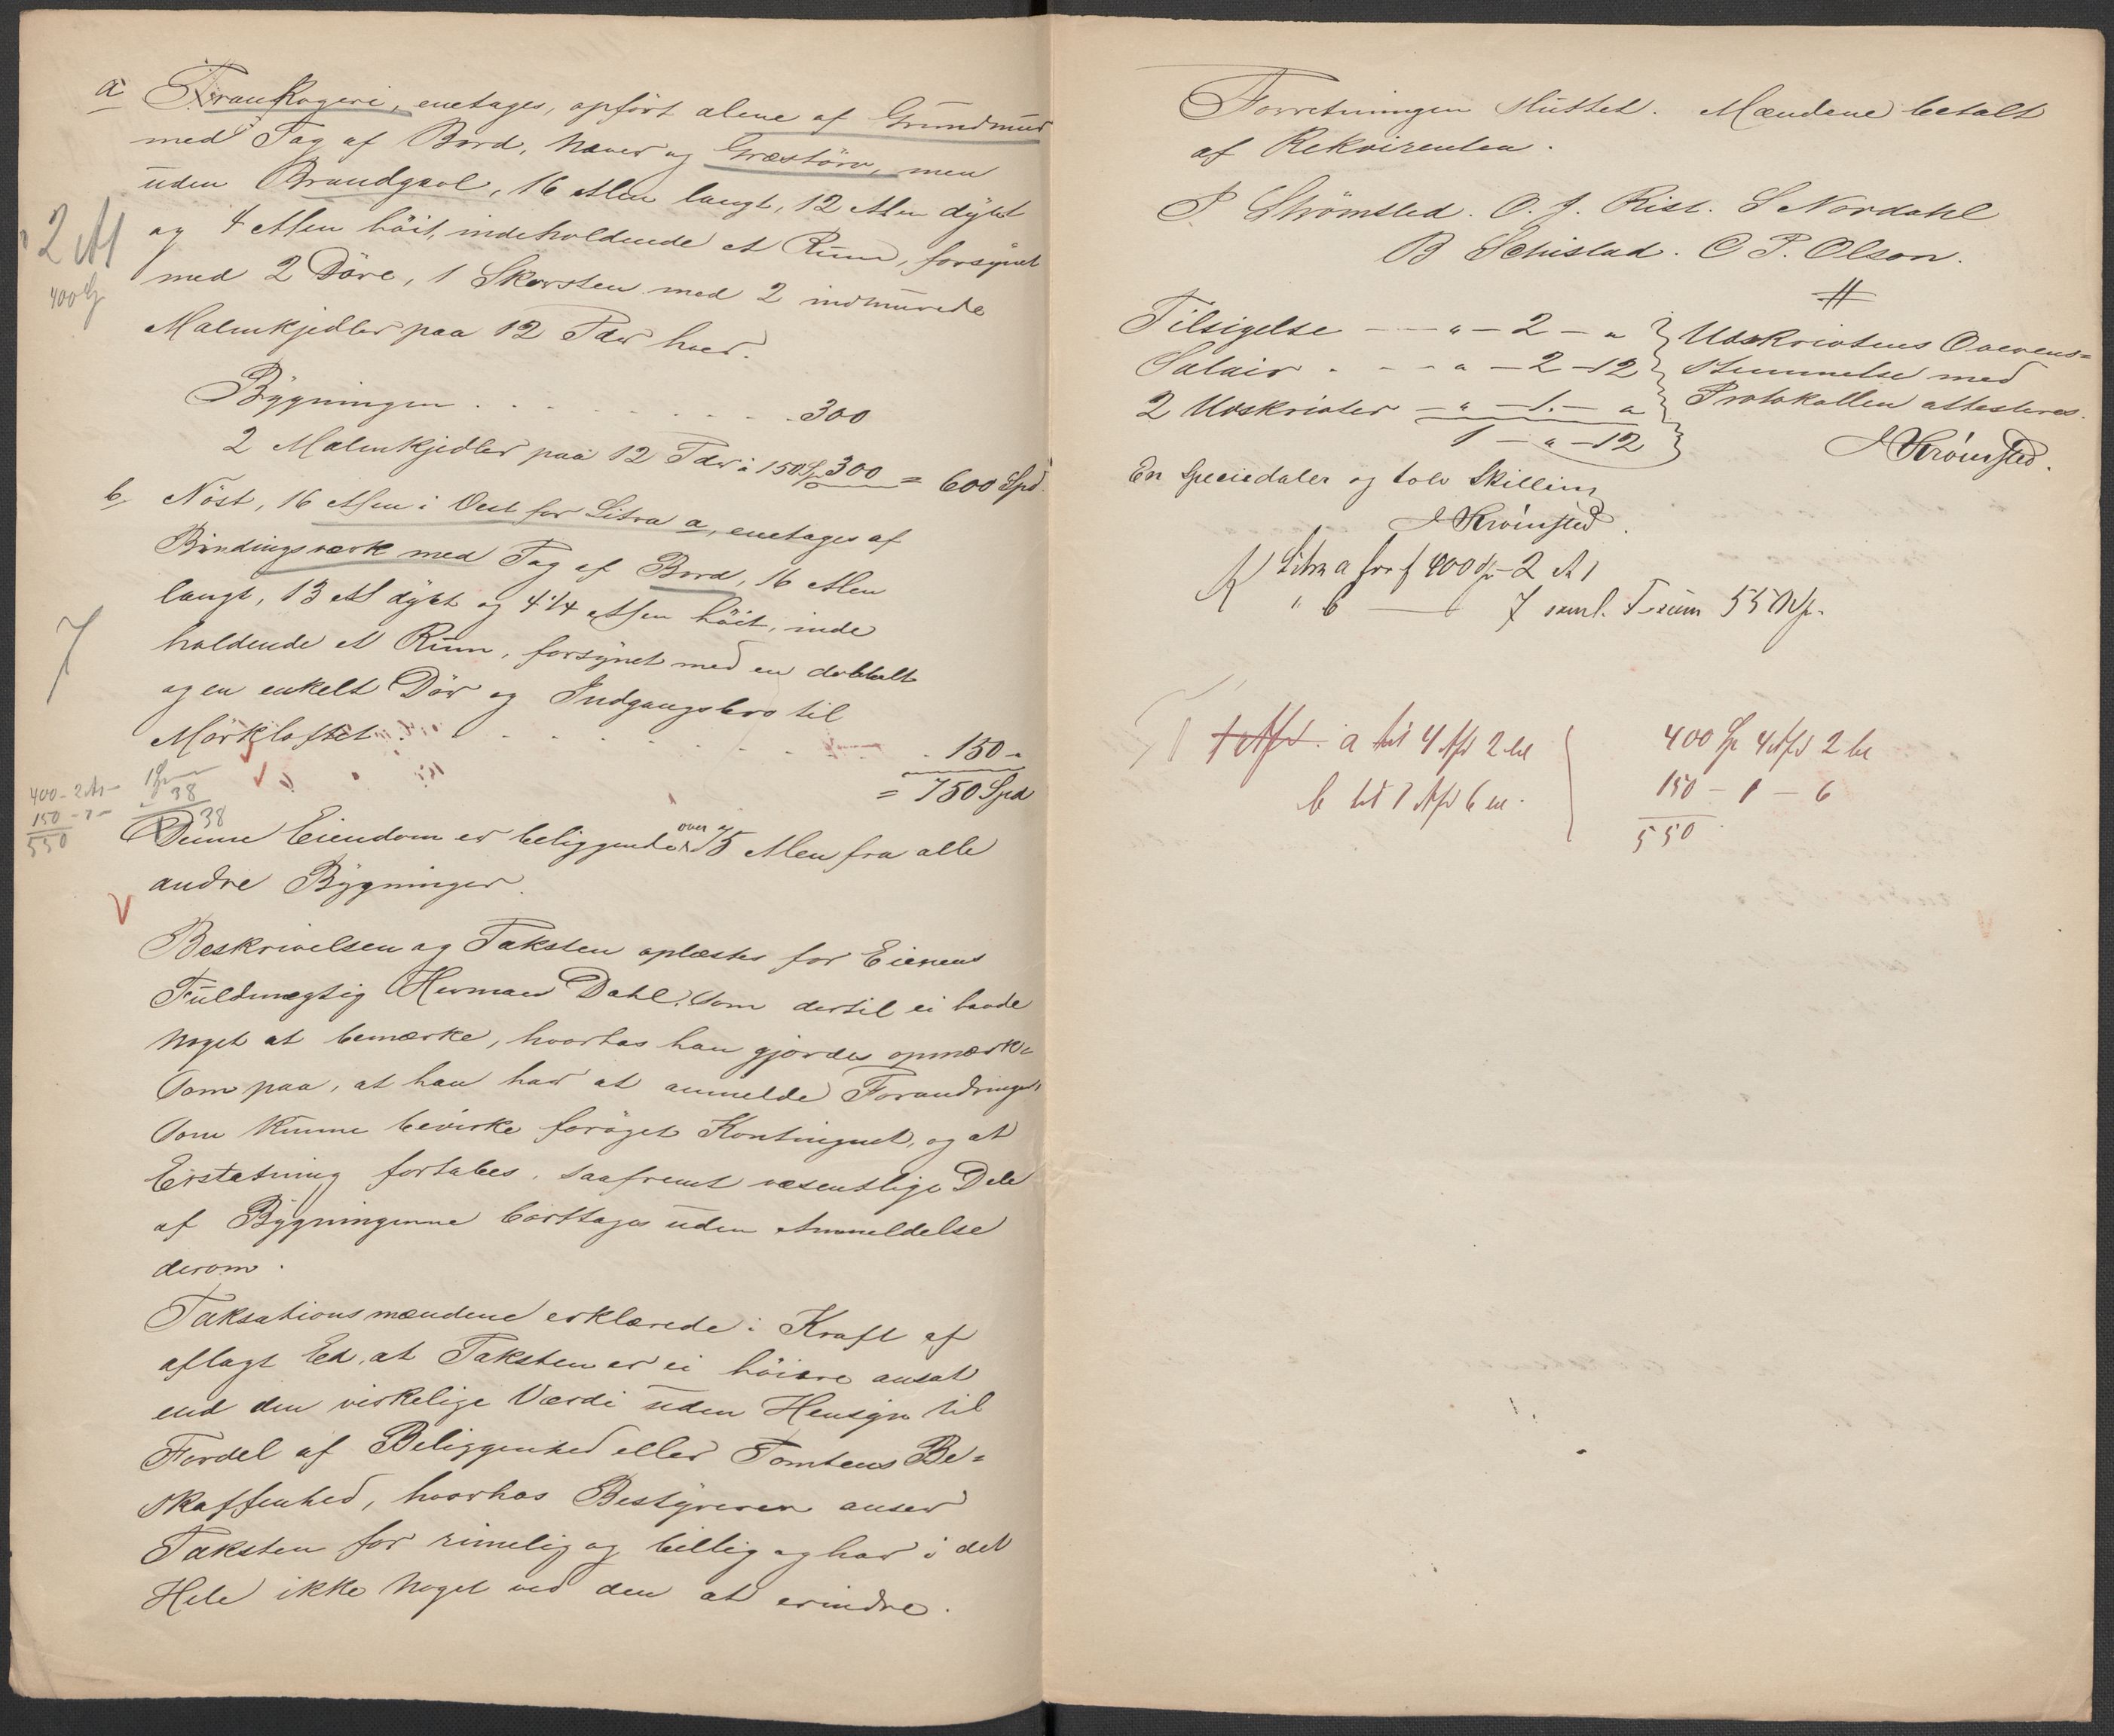 a Trankogeri, enetages, opført alene af Grundmur
med Tag af Bord, Næver og Græstörv, men
uden Brandgavl, 16 Alen langt, 12 Alen dybt
og 4 Alen höit, indeholdende et Rum, forsynet
med 2 Döre, 1 Skorsten med 2 indmurede
Malmkjedler paa 12 Tdr hver.
2 Al
400 Sp
Bygningen . . . . . . . . 300
2 Malmkjedler paa 12 Tdr à 150 Sp 300 = 600 Spd.
b. Nöst, 16 Alen i Vest for Litra a, enetages af
Bindingsværk med Tag af Bord, 16 Alen
langt, 13 Al dybt og 4 1/4 Alen höit, inde
holdende et Rum, forsynet med en dobbelt
og en enkelt Dör og Indgangsbro til
Mörkloftet . . . . . . . 150 -
7
= 750 Spd
400 - 2
150 - 7 -
550
38
38
Denne Eiendom er beliggende over 75 Alen fra alle
andre Bygninger.
Beskrivelsen og Taksten oplæstes for Eierens
Fuldmægtig Herman Dahl, som dertil ei havde
noget at bemærke, hvorhos han gjordes opmærk-
som paa, at han har at anmelde Forandringer,
som kunne bevirke foröget Kontingent, og at
Erstatning fortabes, saafremt væsentlige Dele
af Bygningerne borttages uden Anmeldelse
derom.
Taksationsmændene erklærede i Kraft af
aflagt Ed, at Taksten er ei höiere ansat
end den virkelige Værdi uden Hensyn til
Fordel af Beliggenhed eller Tomtens Be-
skaffenhed, hvorhos Bestyreren anser
Taksten for rimelig og billig og har i det
Hele ikke noget ved den at erindre.
Forretningen sluttet. Mændene betalt
af Rekvirenten.
P Strömsted. O. J. Rist. S Nordahl
B Schistad. O P. Olson.
Tilsigelse — " — 2 — "
Salair . - - " — 2 — 12
2 Udskrivter — " — 1. — "
1 — " — 12
Udskrivtens Overens=
stemmelse med
Protokollen attesteres.
P Strömsted.
En Speciedaler og tolv Skilling
P Strömsted.
Litra a for f 400 Sp - 2 Al
" b — 7 saml. 550 Sp.
a til 4 Afd 2 kl
b til 1 Afd 6 kl.
400 Sp 4 Afd 2 kl
150 - 1 - 6
550